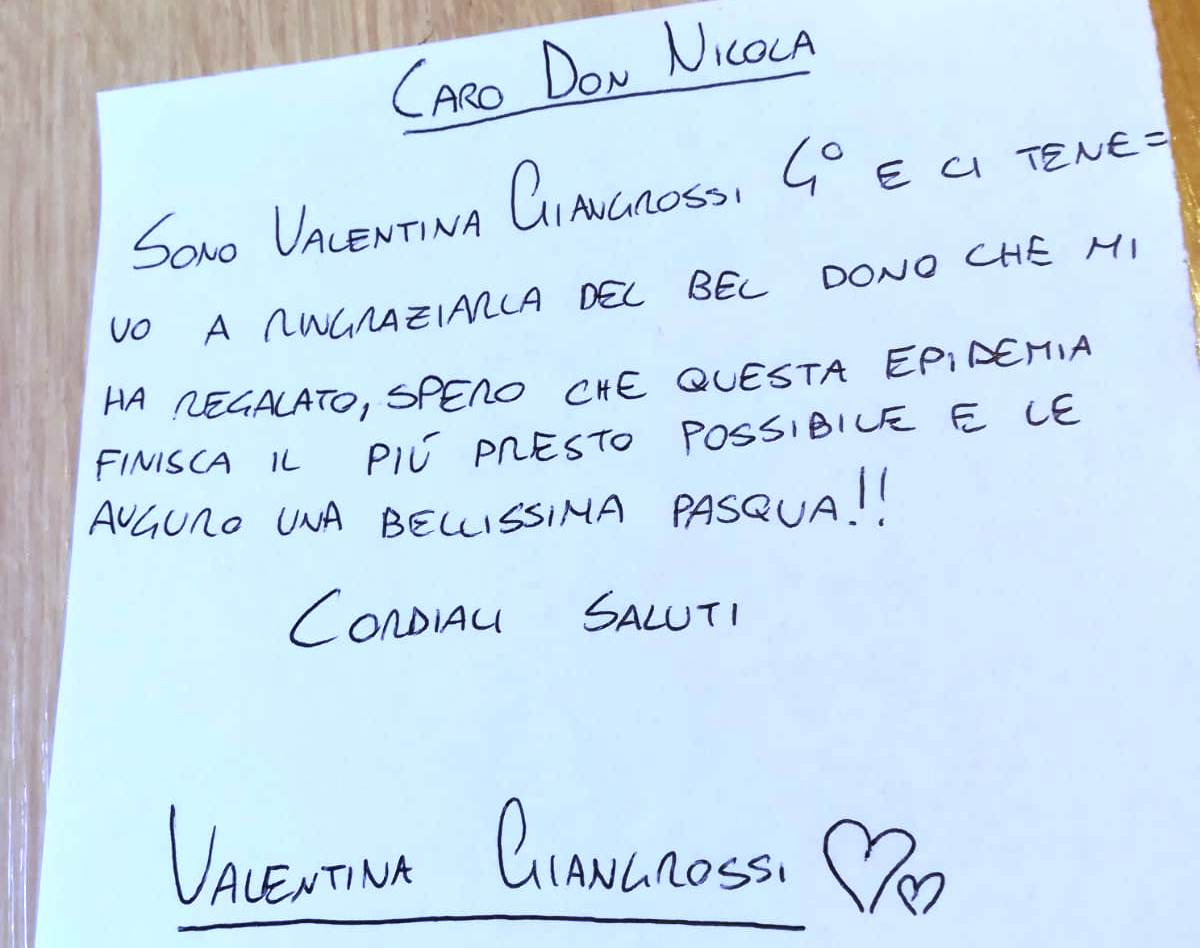 CARO DON NICOLA
SONO VALENTINA GIANGROSSI 4° E CI TENE=
VO A RINGRAZIARLA DEL BEL DONO CHE MI
HA REGALATO, SPERO CHE QUESTA EPIDEMIA
FINISCA IL PIÚ PRESTO POSSIBILE E LE
AUGURO UNA BELLISSIMA PASQUA!!
CORDIALI SALUTI
VALENTINA GIANGROSSI